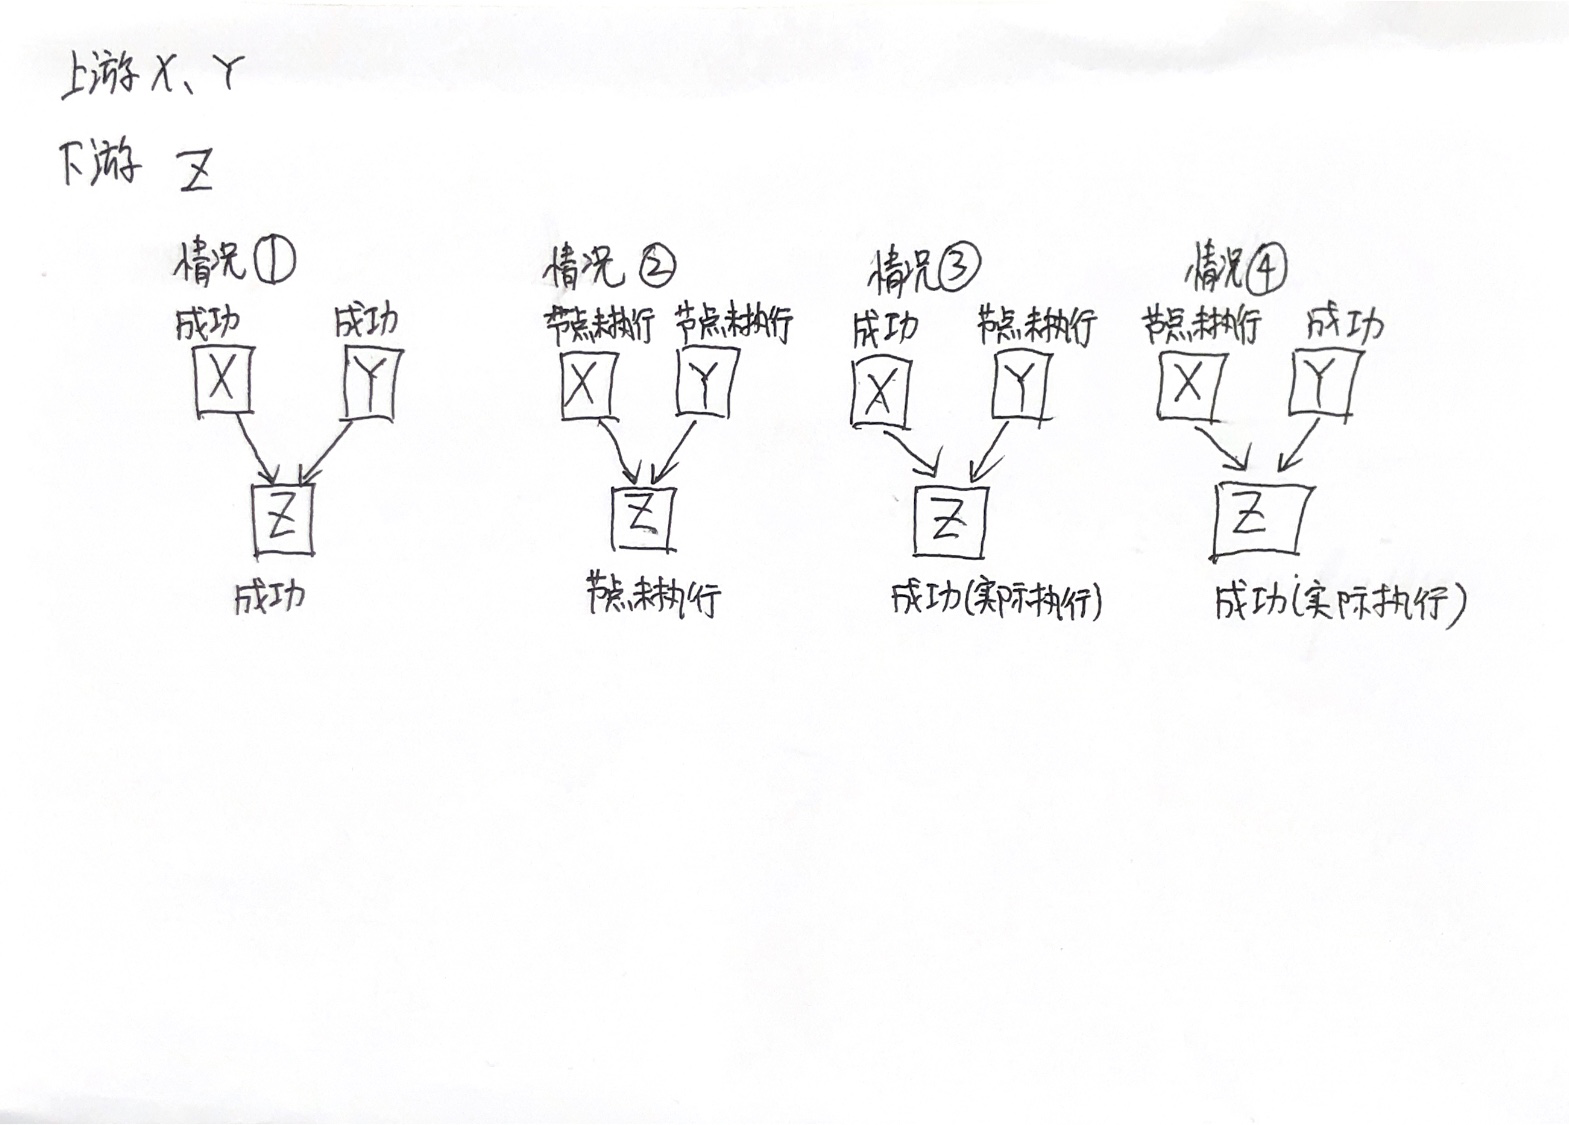 上游 X、Y
下游 Z
情况① 情况② 情况③ 情况④
成功 成功 节点未执行 节点未执行 成功 节点未执行 节点未执行 成功
X Y X Y X Y X Y
Z Z Z Z
成功 节点未执行 成功(实际执行) 成功(实际执行)